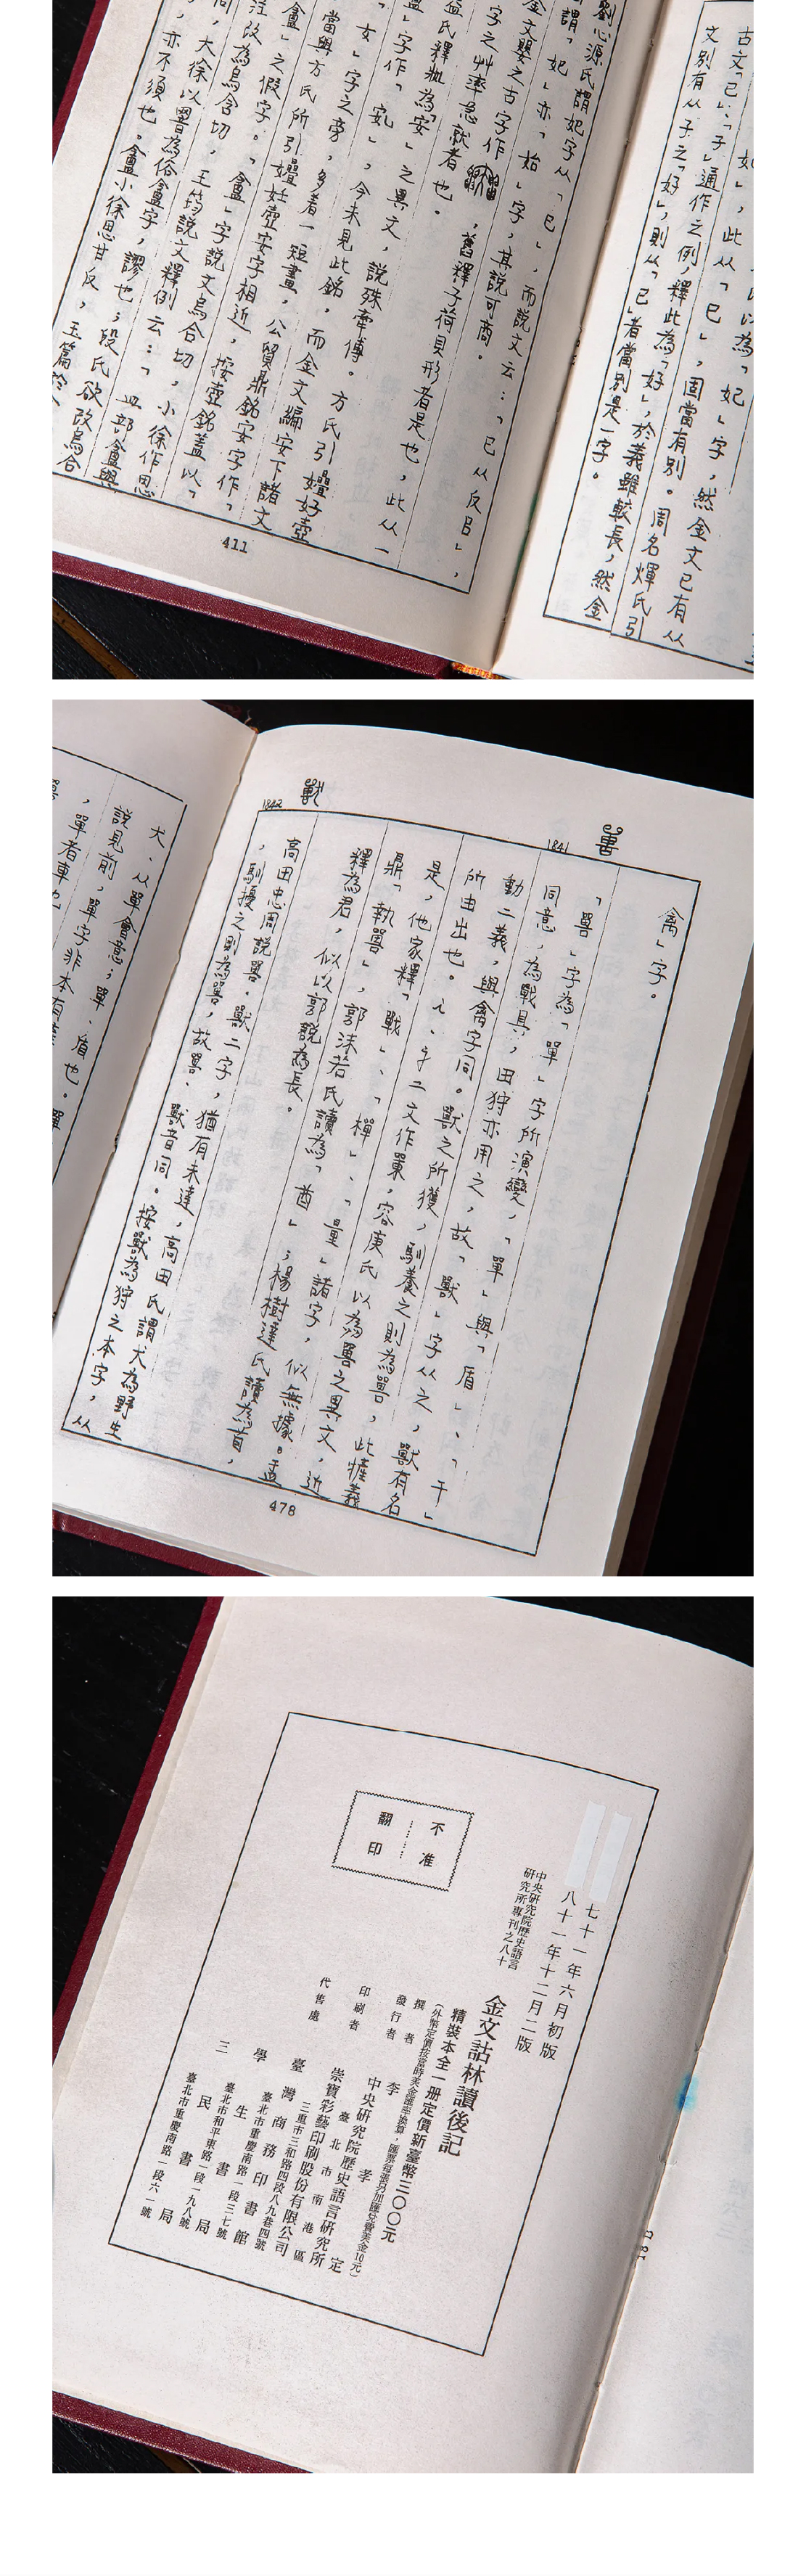 以為「妃」字,然金文已有从
妃」,此从「已」,固當有別。周名煇氏引
古文「已」、「子」通作之例,釋此為「好」,於義雖較長,然金
文別有从子之「好」,則从「已」者當別是一字。
劉心源氏謂妃字从「已」,而說文云:「已从反㠯」,
謂「妃」亦「始」字,其說可商。
金文嬰之古字作,舊釋子荷貝形者是也,此从一
字之艸率急就者也。
益氏釋為「安」之異文,說殊牽傅。方氏引嬗妊壺
盌」字作「」,今未見此銘,而金文編安下諸文
「女」字之旁,多着一短畫,公貿鼎銘安字作「
當與方氏所引嬗妊壺安字相近,按壺銘蓋以「
盦」之假字。「盦」字說文烏合切,小徐作恩
注改為烏含切,王筠說文釋例云:「皿部盦與
同,大徐以為俗盦字,謬也,段氏欲改烏合
,亦不須也。盦小徐恩甘反,玉篇於
411
禽」字。
1841 嘼
「嘼」字為「單」字所演變,「單」與「盾」、「干」
同意,為戰具,田狩亦用之,故「獸」字从之,獸有名
動二義,與禽字同。獸之所獲,馴養之則為嘼,此義
所由出也。二文作,容庚氏以為嘼之異文,近
是,他家釋「戰」、「樿」、「量」諸字,似無據。盂
鼎「執嘼」,郭沫若氏讀為「酋」;楊樹達氏讀為首,
釋為君,似以郭說為長。
1842 獸
高田忠周說嘼、獸二字,猶有未達,高田氏謂犬為野生
,馴擾之則為嘼,故嘼、獸音同。按獸為狩之本字,从
478
犬、从單會意;單、盾也。
說見前,單字非本有
,單者車也
七十一年六月初版
八十一年十二月二版
中央研究院歷史語言
研究所專刊之八十
金文詁林讀後記
精裝本全一册定價新臺幣三〇〇元
(外幣定價按當時美金匯率換算,匯票每張另加匯兌費美金10元)
撰者 李孝定
發行者 中央研究院歷史語言研究所
臺北市南港區
印刷者 崇寶彩藝印刷股份有限公司
三重市三和路四段八九巷四號
代售處 臺灣商務印書館
臺北市重慶南路一段三七號
學生書局
臺北市和平東路一段一九八號
三民書局
臺北市重慶南路一段六一號
不准
翻印